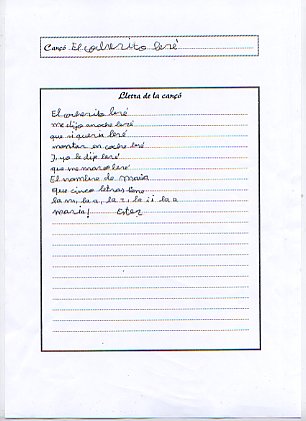 Cançó El cocherito leré
Lletra de la cançó
El cocherito leré
me dijo anoche leré
que si queria leré
montar en coche leré
I, yo le dije leré
que me mareo leré
El nombre de Maria
que cinco letras tiene
la m, la a, la r, la i, la a
maria! Ester